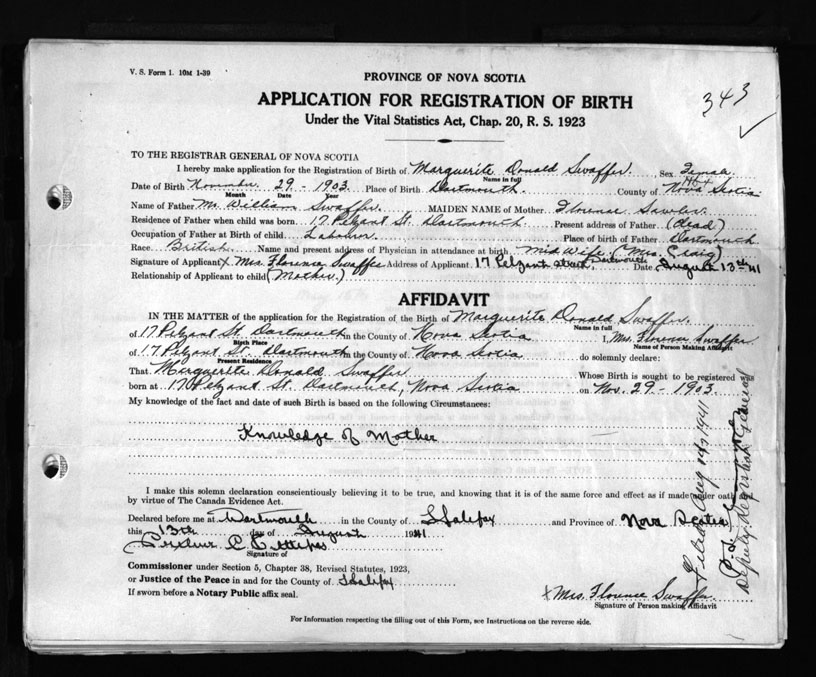 V. S. Form 1. 10M 1-39
343
PROVINCE OF NOVA SCOTIA
APPLICATION FOR REGISTRATION OF BIRTH
Under the Vital Statistics Act, Chap. 20, R. S. 1923
TO THE REGISTRAR GENERAL OF NOVA SCOTIA
I hereby make application for the Registration of Birth of Marguerite Donald Swaffer Sex Female
Name in full
Date of Birth November 29 - 1903 Place of Birth Dartmouth County of Nova Scotia
Month Date Year
Name of Father Mr William Swaffer MAIDEN NAME of Mother Florence
Residence of Father when child was born 17 Pelzant St. Dartmouch Present address of Father (Dead)
Occupation of Father at Birth of child Labourer Place of birth of Father Dartmouch
Race British Name and present address of Physician in attendance at birth Mid Wife (Mrs. Craig)
Signature of Applicant X Mrs. Florence Swaffer Address of Applicant 17 Pelzant street, Dartmouth Date August 13th 41
Relationship of Applicant to child (Mother.)
AFFIDAVIT
IN THE MATTER of the application for the Registration of the Birth of Marguerite Donald Swaffer
Name in full
of 17 Pelzant St. Dartmouth in the County of Nova Scotia I, Mrs. Florence Swaffer
Birth Place Name of Person Making Affidavit
of 17 Pelzant St. Dartmouth in the County of Nova Scotia do solemnly declare:
Present Residence
That Marguerite Donald Swaffer Whose Birth is sought to be registered was
born at 17 Pelzant St. Dartmouch, Nova Scotia on Nov. 29 - 1903
My knowledge of the fact and date of such Birth is based on the following Circumstances:
Knowledge of Mother
I make this solemn declaration conscientiously believing it to be true, and knowing that it is of the same force and effect as if made under oath and
by virtue of The Canada Evidence Act.
Declared before me at Dartmouth in the County of Halifax and Province of Nova Scotia
this 13th day of August 1941
Signature of
Commissioner under Section 5, Chapter 38, Revised Statutes, 1923,
or Justice of the Peace in and for the County of Halifax
If sworn before a Notary Public affix seal.
X Mrs. Florence Swaffer
Signature of Person making Affidavit
For Information respecting the filling out of this Form, see Instructions on the reverse side.
Filed Aug 14, 1941
Deputy Registrar General